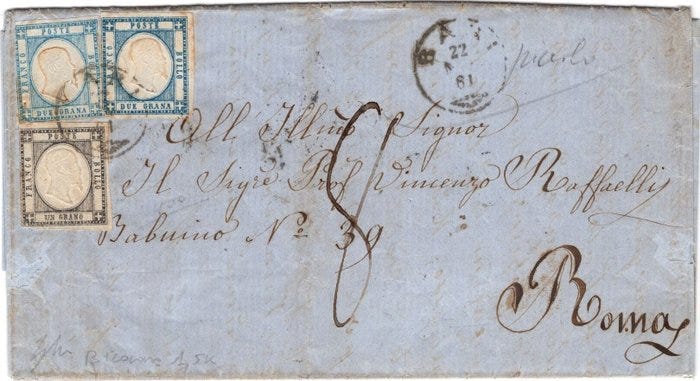 POSTE
FRANCO
BOLLO
DUE GRANA
POSTE
FRANCO
BOLLO
DUE GRANA
POSTE
FRANCO
BOLLO
UN GRANO
22
61
All Illmo Signor
Il Sigre Prof Vincenzo Raffaelli
Babuino No. 39
Roma